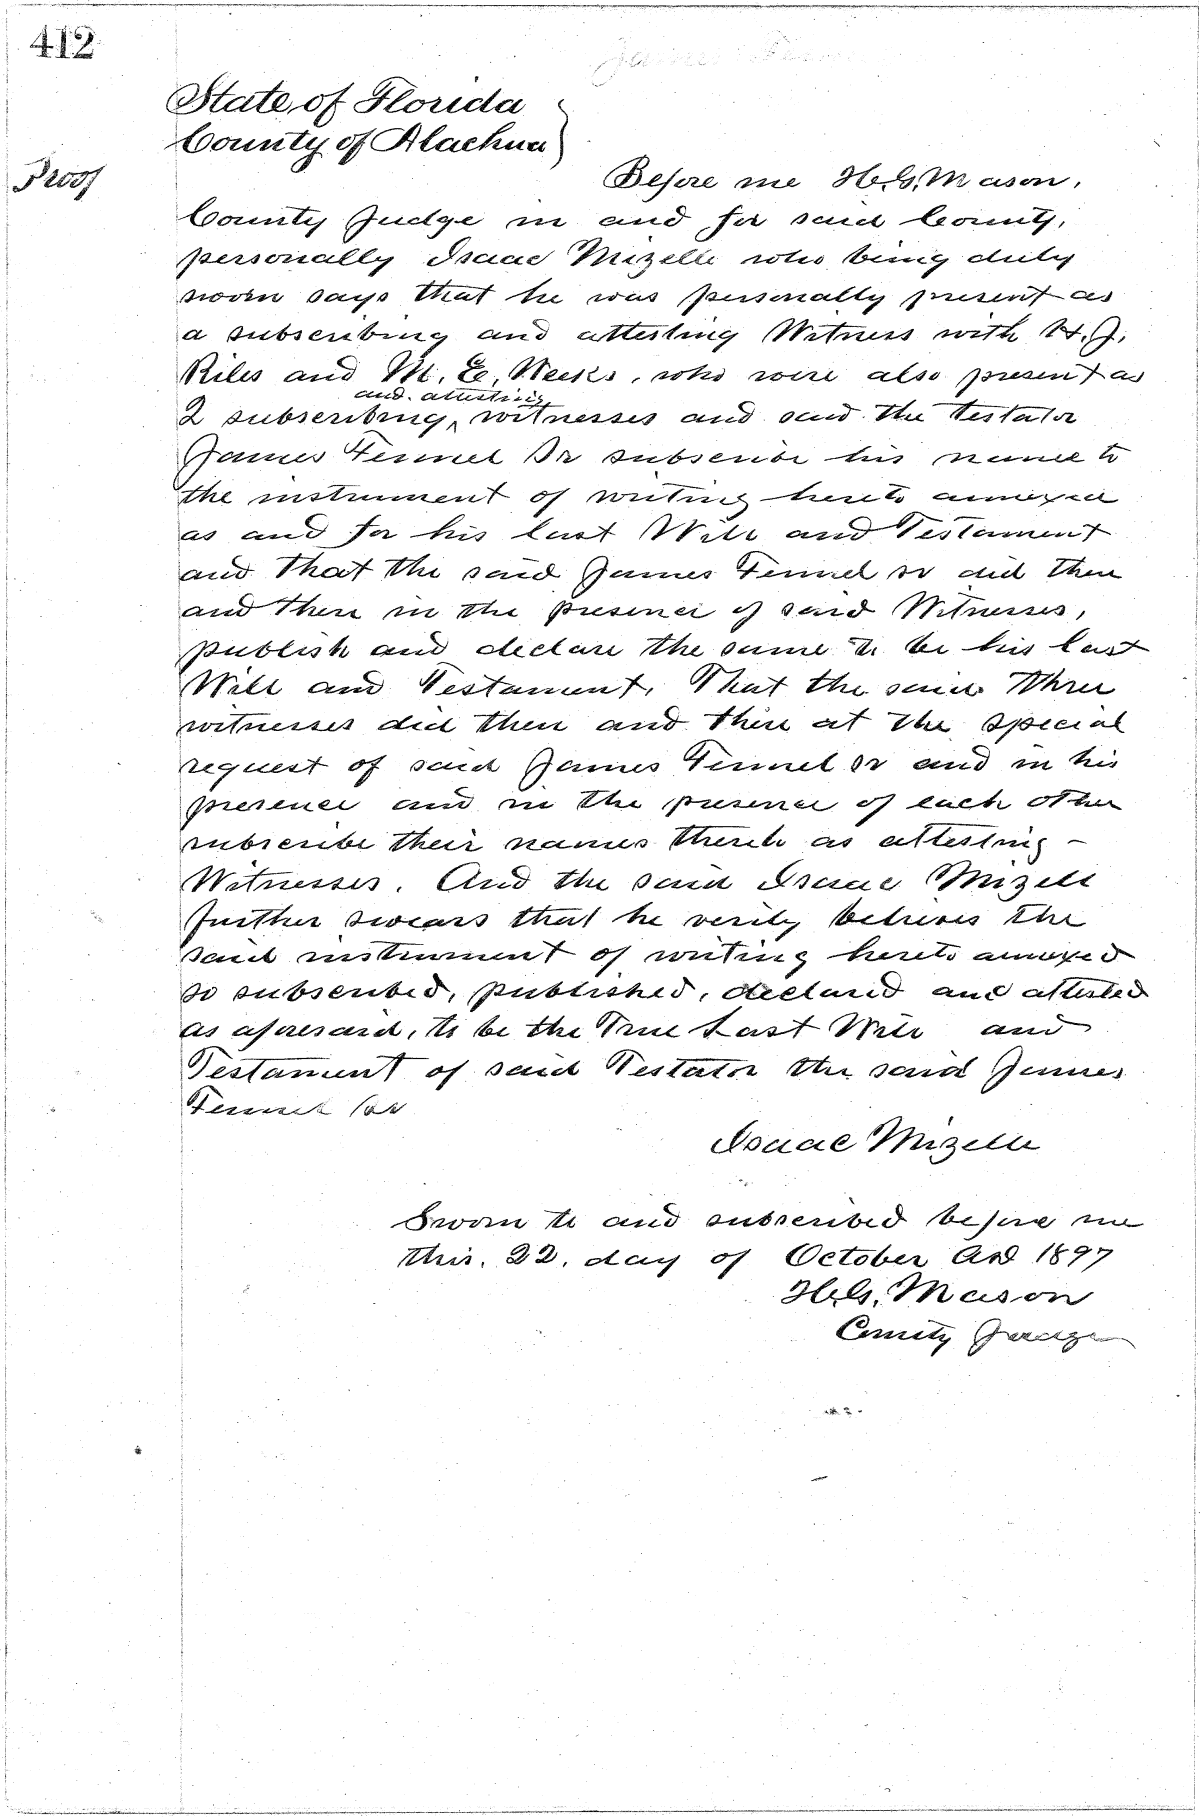 412
State of Florida
County of Alachua
Proof
Before me H.G. Mason,
County Judge in and for said County,
personally Isaac Mizelle who being duly
sworn says that he was personally present as
a subscribing and attesting Witness with H. J.
Riles and M. E. Weeks, who were also present as
and attesting
2 subscribing, witnesses and said the Testator
James Fennel Sr subscribe his name to
the instrument of writing hereto annexed
as and for his last Will and Testament
and that the said James Fennel sr did then
and there in the presence of said Witnesses,
publish and declare the same to be his last
Will and Testament, That the said three
witnesses did then and there at the special
request of said James Fennel sr and in his
presence and in the presence of each other
subscribe their names thereto as attesting -
Witnesses. And the said Isaac Mizell
further swears that he verily believes the
said instrument of writing hereto annexed
so subscribed, published, declared and attested
as aforesaid, to be the True Last Will and
Testament of said Testator the said James
Fennel Sr
Isaac Mizelle
Sworn to and subscribed before me
this. 22. day of October AD 1897
H.G. Mason
County Judge